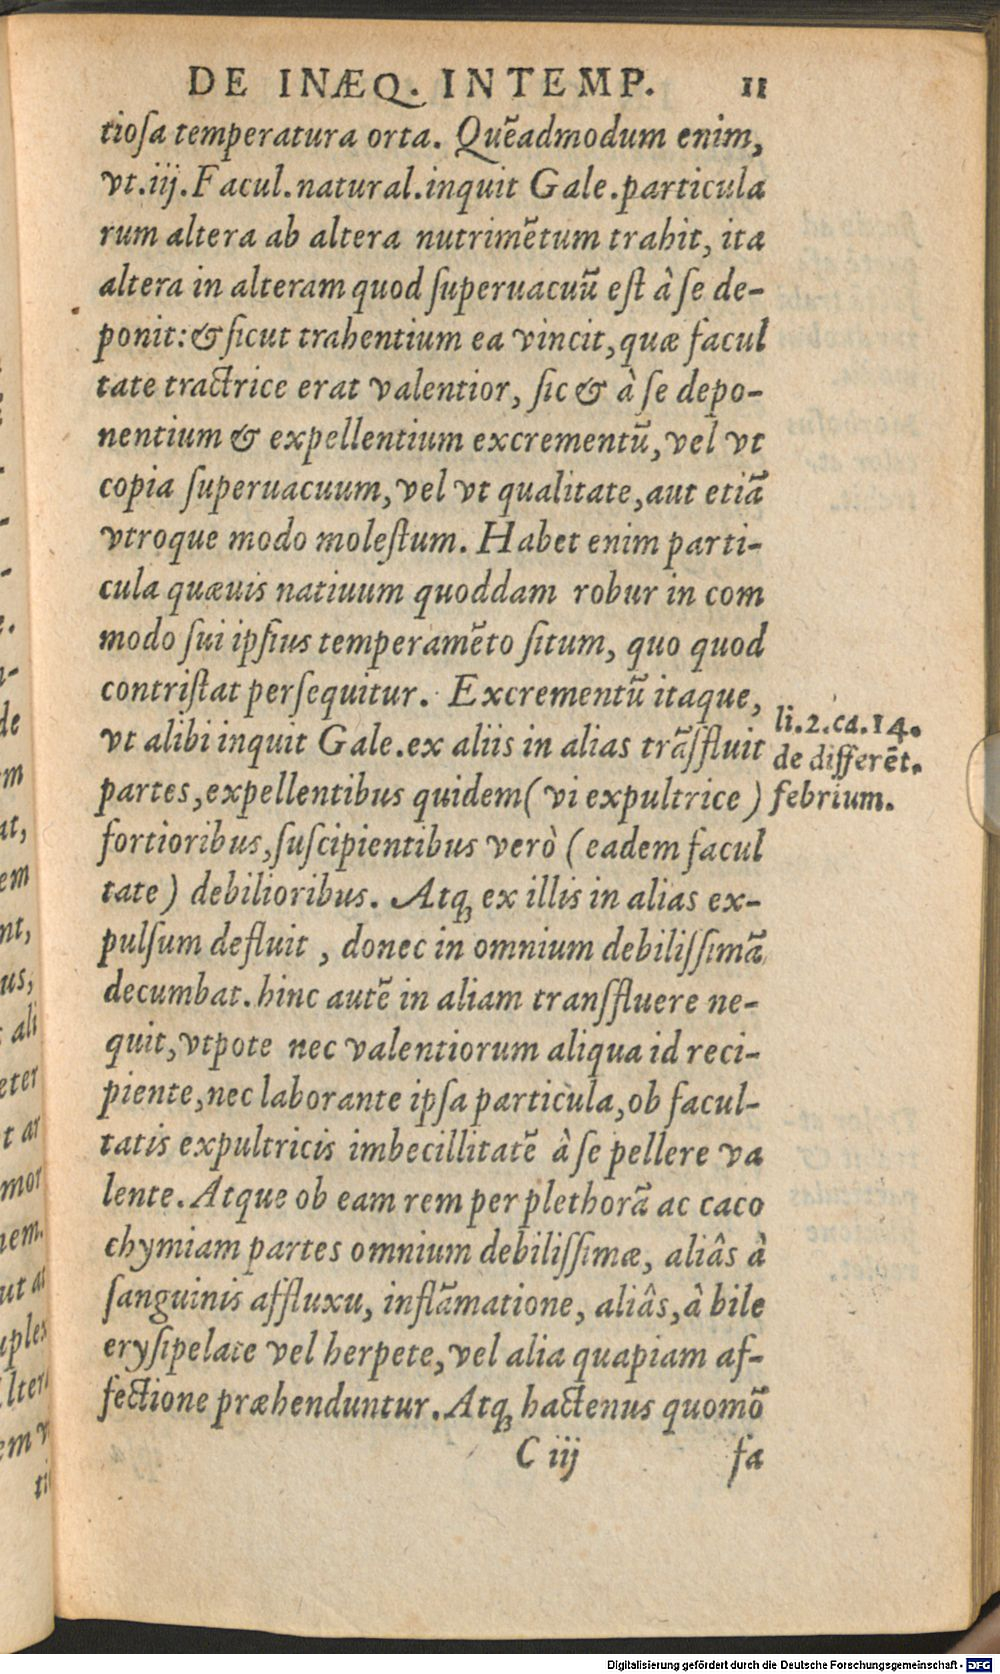 DE INÆQ. INTEMP. 11
tiosa temperatura orta. Quẽadmodum enim,
vt.iij.Facul.natural.inquit Gale.particula
rum altera ab altera nutrimẽtum trahit, ita
altera in alteram quod superuacuũ est à se de-
ponit:& sicut trahentium ea vincit,quæ facul
tate tractrice erat valentior, sic & à se depo-
nentium & expellentium excrementũ,vel vt
copia superuacuum,vel vt qualitate,aut etiã
vtroque modo molestum. Habet enim parti-
cula quæuis natiuum quoddam robur in com
modo sui ipsius temperamẽto situm, quo quod
contristat persequitur. Excrementũ itaque,
vt alibi inquit Gale.ex aliis in alias trãsfluit
partes,expellentibus quidem( vi expultrice )
fortioribus,suscipientibus verò ( eadem facul
tate ) debilioribus. Atq; ex illis in alias ex-
pulsum defluit , donec in omnium debilissimã
decumbat.hinc autẽ in aliam transfluere ne-
quit,vtpote nec valentiorum aliqua id reci-
piente,nec laborante ipsa particula,ob facul-
tatis expultricis imbecillitatẽ à se pellere va
lente. Atque ob eam rem per plethorã ac caco
chymiam partes omnium debilissimæ, aliâs à
sanguinis affluxu, inflãmatione, aliâs,à bile
erysipelate vel herpete,vel alia quapiam af-
fectione præhenduntur. Atq; hactenus quomõ
C iij fa
li.2.ca.14.
de differẽt.
febrium.
de
em
at,
em
nt,
us,
ali
eter
t ar
mor
nem.
ut at
uplex
em v
Digitalisierung gefördert durch die Deutsche Forschungsgemeinschaft - DFG